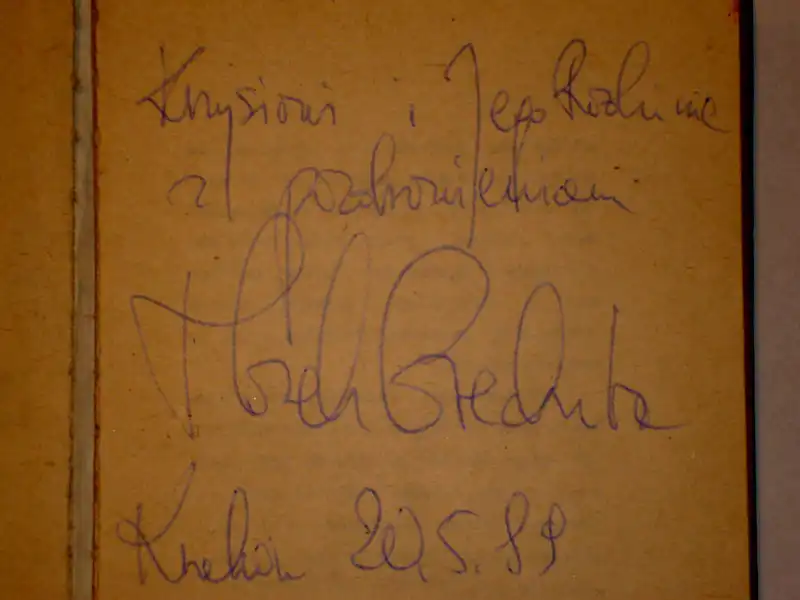 Krzysiowi i Jego Rodzinie
z pozdrowieniami
Marek Grechuta
Kraków 20.5.89